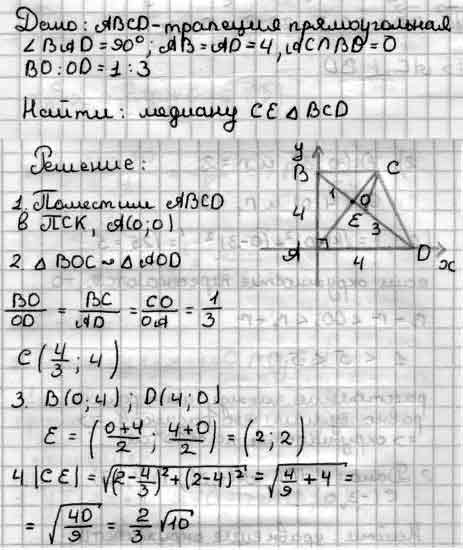 Дано: ABCD-трапеция прямоугольная
∠BAD=90°; AB=AD=4, AC∩BD=O
BO:OD=1:3
Найти: медиану CE △BCD
Решение:
1. Поместим ABCD
в ПСК, A(0;0)
y
B
C
1
O
E
4
3
A
4
D
x
2. △BOC ~ △AOD
BO/OD = BC/AD = CO/OA = 1/3
C(4/3; 4)
3. B(0;4); D(4;0)
E = (0+4/2; 4+0/2) = (2;2)
4 |CE| = √(2-4/3)²+(2-4)² = √4/9+4 =
= √40/9 = 2/3 √10